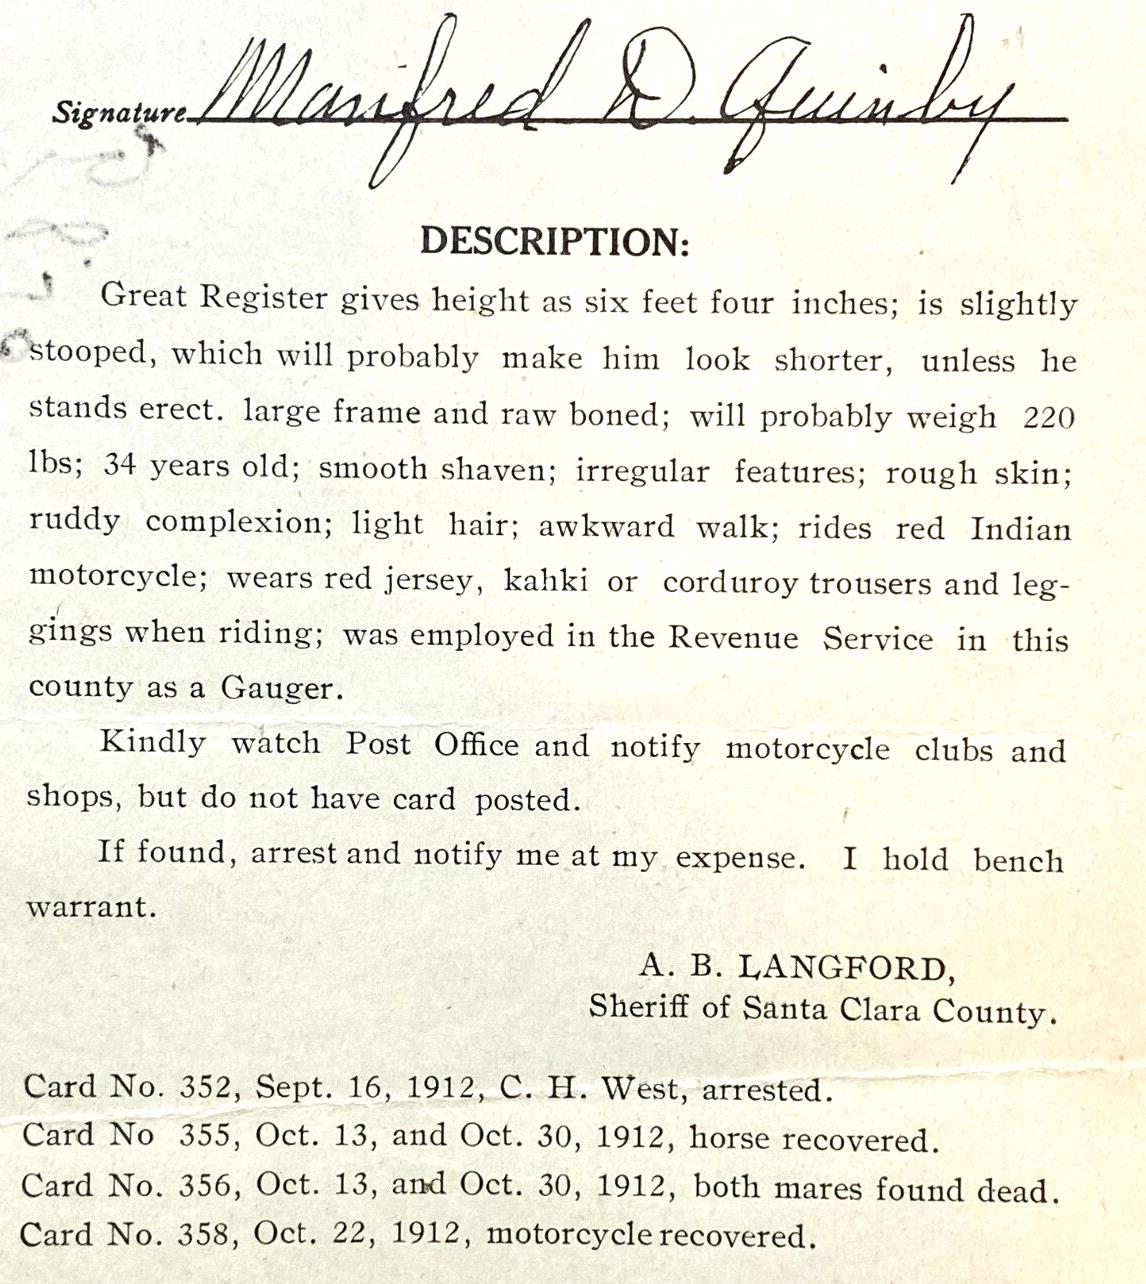 Signature Manifred D. Quinby
DESCRIPTION:
Great Register gives height as six feet four inches; is slightly
stooped, which will probably make him look shorter, unless he
stands erect. large frame and raw boned; will probably weigh 220
lbs; 34 years old; smooth shaven; irregular features; rough skin;
ruddy complexion; light hair; awkward walk; rides red Indian
motorcycle; wears red jersey, kahki or corduroy trousers and leg-
gings when riding; was employed in the Revenue Service in this
county as a Gauger.
Kindly watch Post Office and notify motorcycle clubs and
shops, but do not have card posted.
If found, arrest and notify me at my expense. I hold bench
warrant.
A. B. LANGFORD,
Sheriff of Santa Clara County.
Card No. 352, Sept. 16, 1912, C. H. West, arrested.
Card No 355, Oct. 13, and Oct. 30, 1912, horse recovered.
Card No. 356, Oct. 13, and Oct. 30, 1912, both mares found dead.
Card No. 358, Oct. 22, 1912, motorcycle recovered.